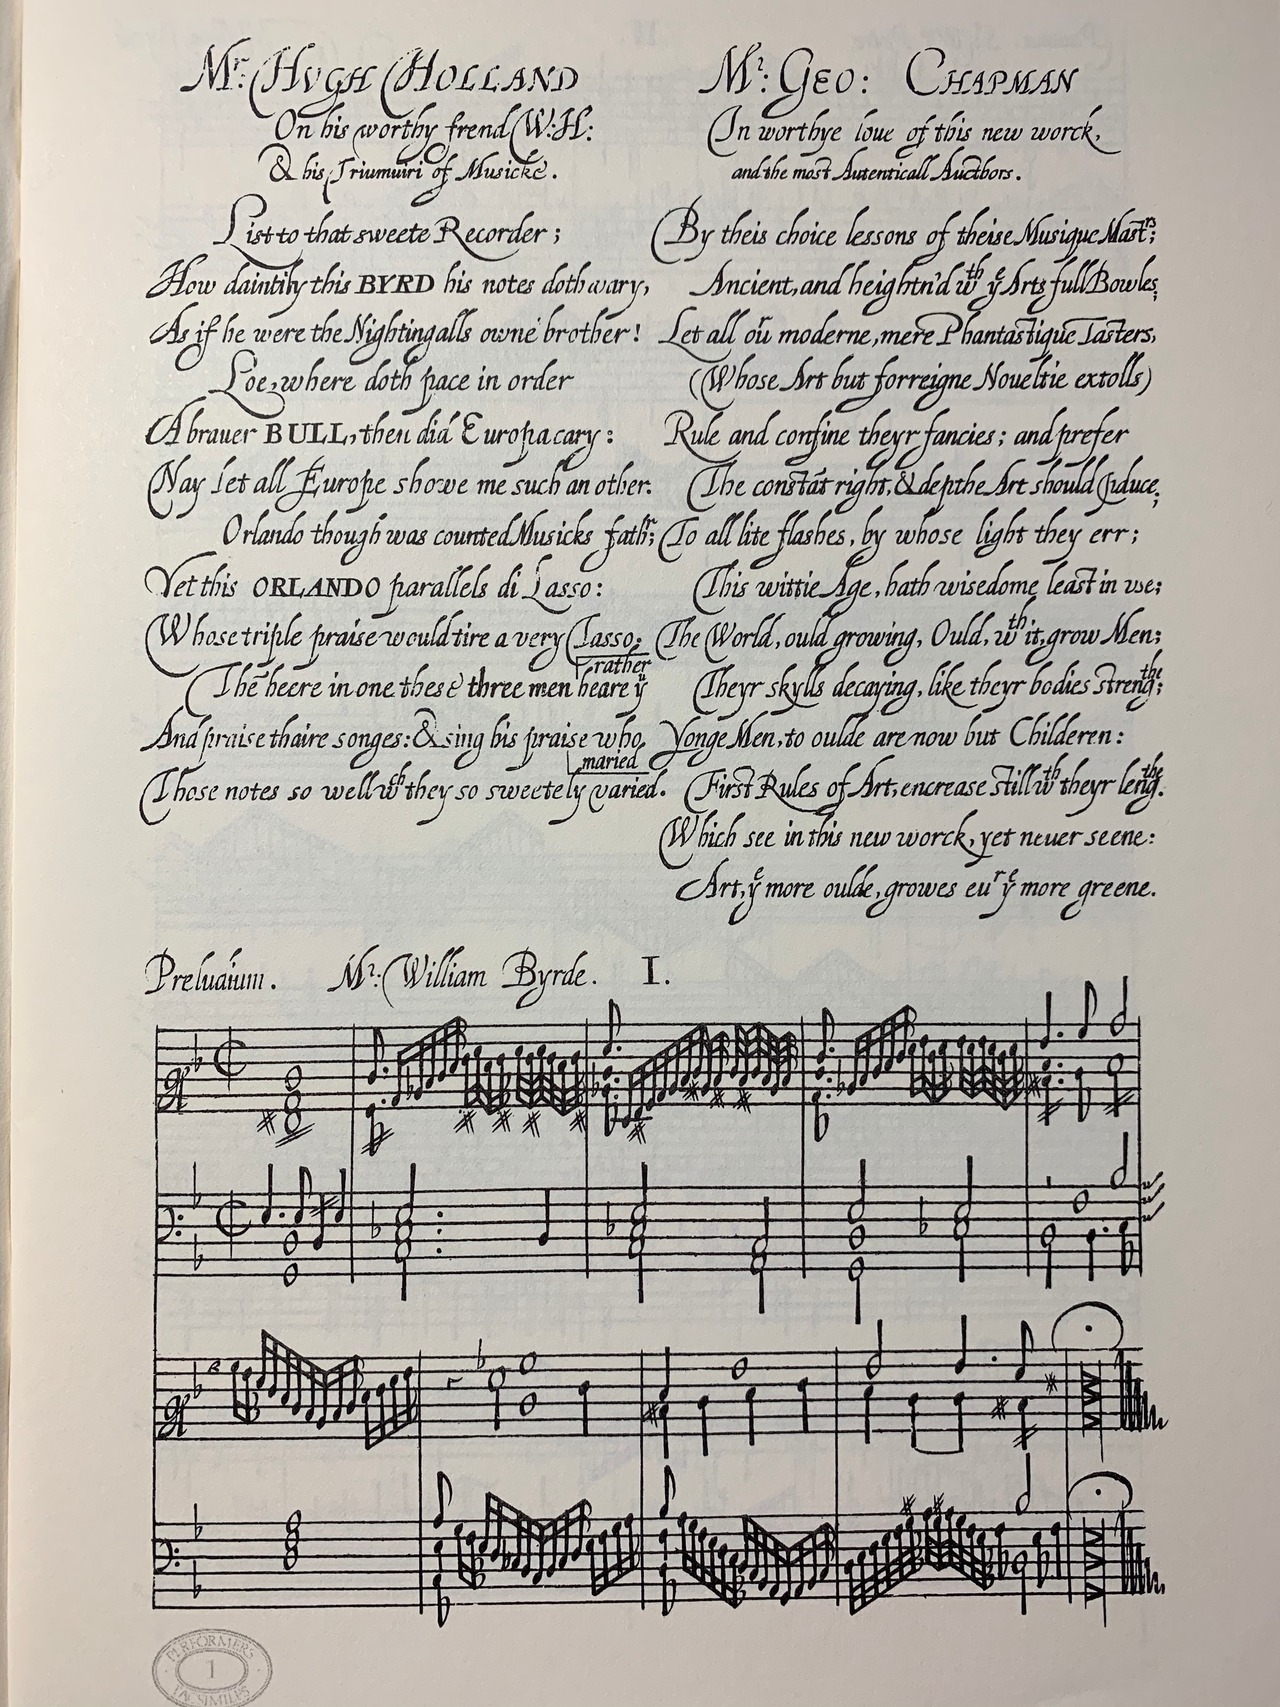 Mr: HVGH HOLLAND
On his worthy frend W:H:
& his Triumuiri of Musicke.
List to that sweete Recorder;
How daintily this BYRD his notes doth vary,
As if he were the Nightingalls owne brother!
Loe, where doth pace in order
A brauer BULL, then did Europa cary:
Nay let all Europe showe me such an other.
Orlando though was counted Musicks fathr;
Yet this ORLANDO parallels di Lasso:
Whose triple praise would tire a very Tasso;
Thē heere in one these three men heare yu
rather
And praise thaire songes: & sing his praise who
maried
Those notes so well wch they so sweetely varied.
Mr: GEO: CHAPMAN
In worthye loue of this new worck,
and the most Autenticall Aucthors.
By theis choice lessons of theise Musique Mastrs;
Ancient, and heightn'd wth ye Arts full Bowles;
Let all our moderne, mere Phantastique Tasters,
(Whose Art but forreigne Noueltie extolls)
Rule and confine theyr fancies; and prefer
The constāt right, & depthe Art should pduce;
To all lite flashes, by whose light they err;
This wittie Age, hath wisedome least in vse;
The World, ould growing, Ould, wth it, grow Men;
Theyr skylls decaying, like theyr bodies strengthe;
Yonge Men, to oulde are now but Childeren:
First Rules of Art, encrease still wth theyr lengthe.
Which see in this new worck, yet neuer seene:
Art, ye more oulde, growes eur ye more greene.
Preludium. Mr: William Byrde. I.
PERFORMERS
1
FACSIMILES